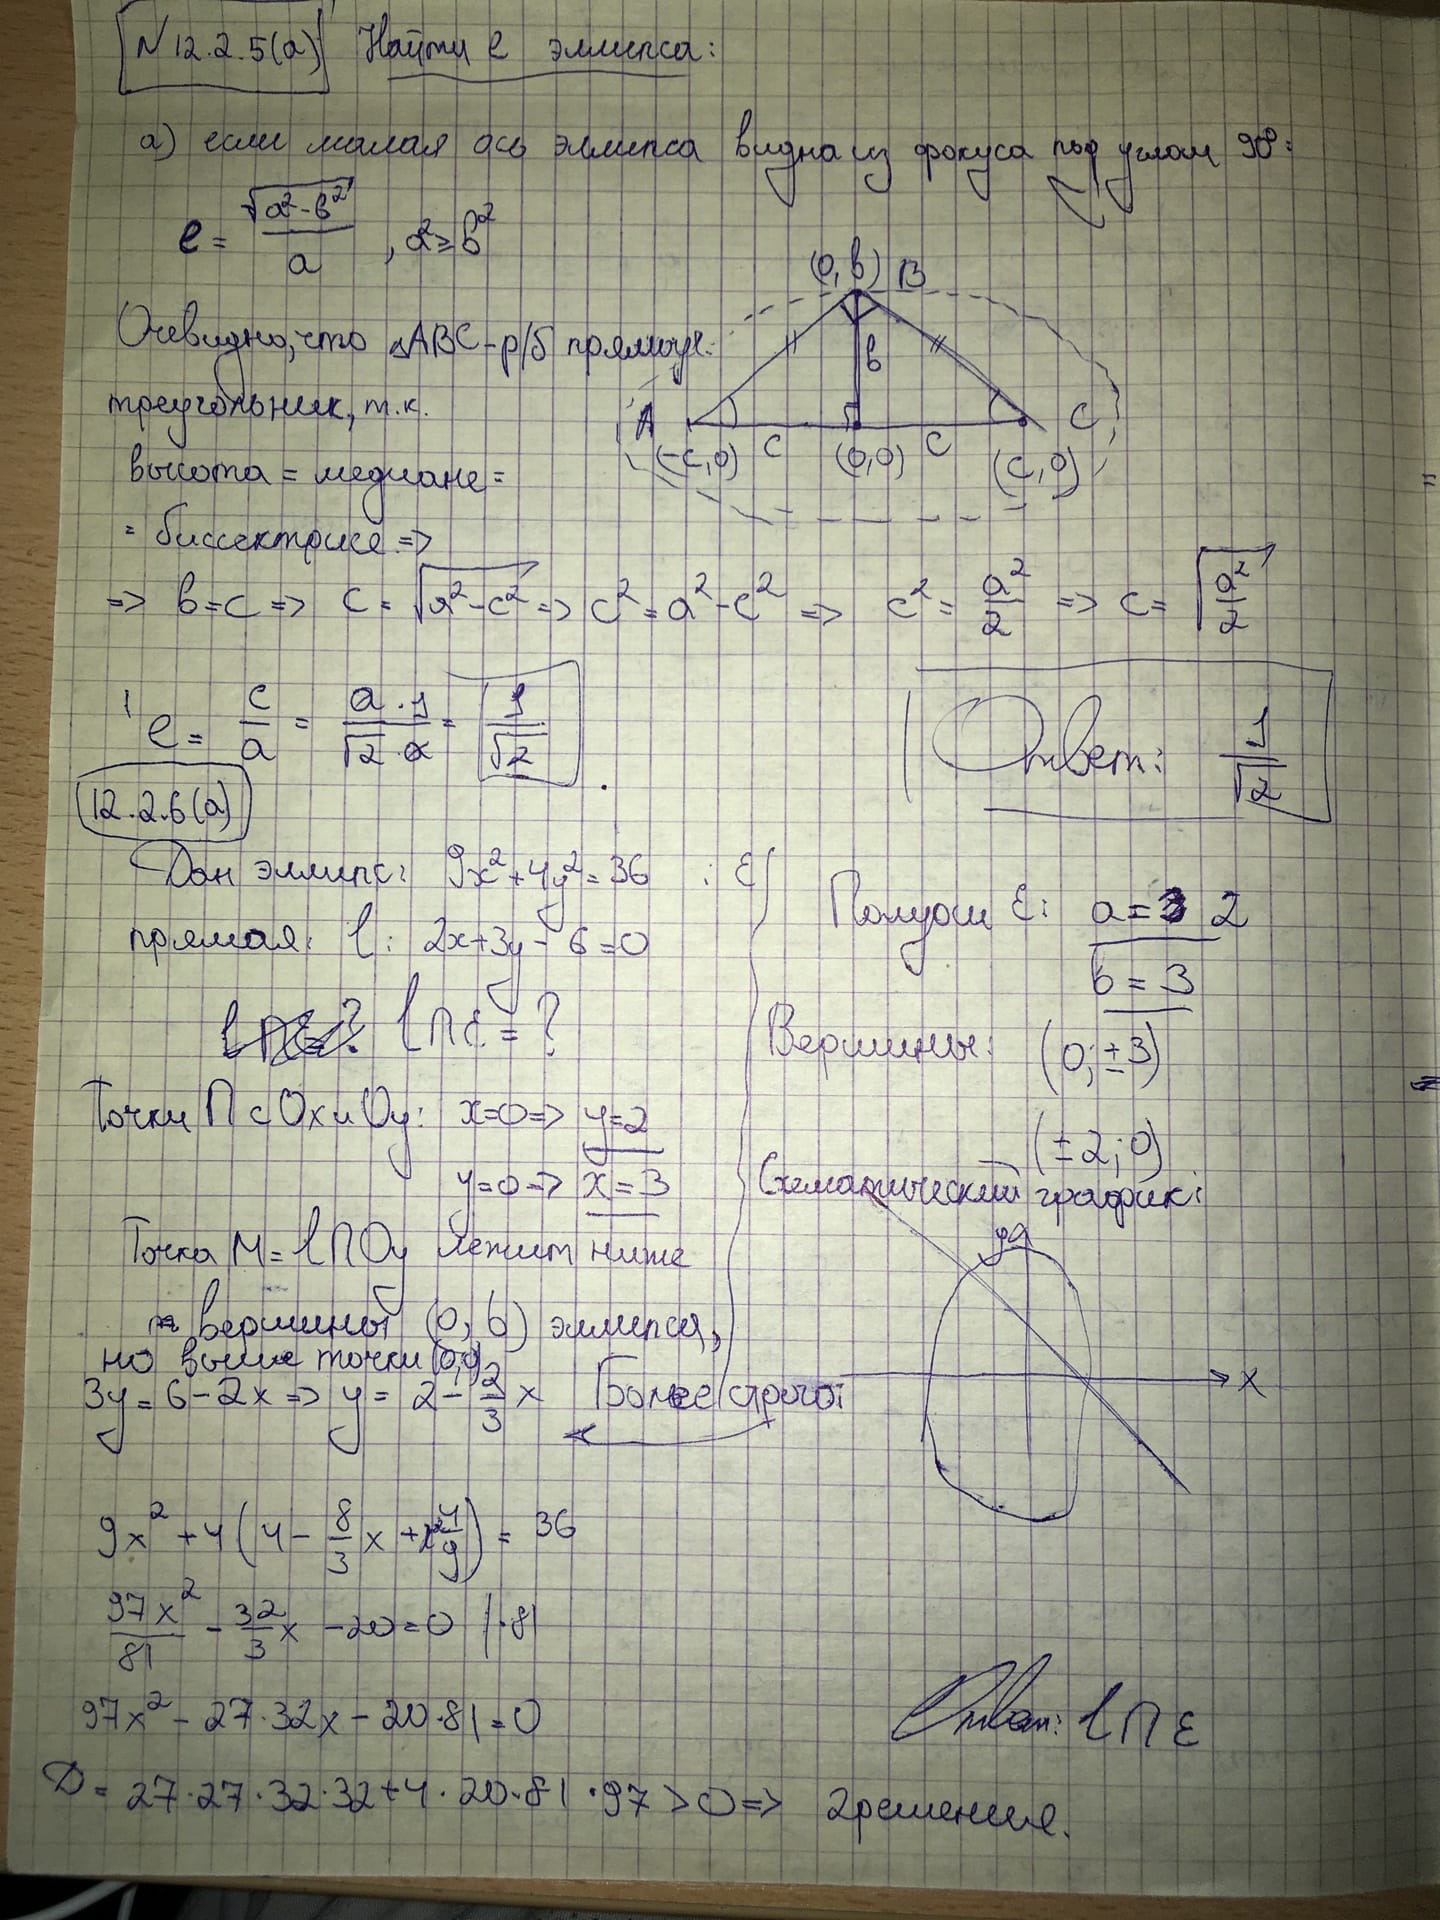 N 12.2.5(а) Найти e эллипса:
а) если малая ось эллипса видна из фокуса под углом 90°:
e = √(a² - b²) / a , a² ≥ b²
(0, b) B
Очевидно, что △ABC - р/б прямоуг.
треугольник, т.к.
высота = медиане =
= биссектрисе =>
b
A C
(-c, 0) c (0,0) c (c, 0)
=> b = c => c = √(a² - c²) => c² = a² - c² => c² = a²/2 => c = √(a²/2)
e = c/a = a·1/(√2·a) = 1/√2
Ответ: 1/√2
12.2.6(а)
Дан эллипс: 9x² + 4y² = 36 : Ɛ
прямая: l: 2x + 3y - 6 = 0
l ∩ Ɛ = ?
Точки ∩ с Ox и Oy: x = 0 => y = 2
y = 0 => x = 3
Точка M = l ∩ Oy лежит ниже
вершины (0, b) эллипса,
но выше точки (0,0)
Полуоси Ɛ: a = 2
b = 3
Вершины: (0; ±3)
(±2; 0)
Схематический график:
y
x
Более строго:
3y = 6 - 2x => y = 2 - 2/3 x
9x² + 4(4 - 8/3 x + x² 4/9) = 36
97x²/81 - 32/3 x - 20 = 0 | · 81
97x² - 27·32x - 20·81 = 0
D = 27·27·32·32 + 4·20·81·97 > 0 => 2 решения.
Ответ: l ∩ Ɛ